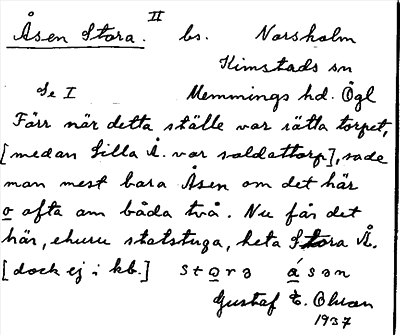 Åsen Stora. II bs. Norsholm
Kimstads sn
Se I Memmings hd. Ögl
Förr när detta ställe var rätta torpet,
[medan Lilla Å. var soldattorp], sade
man mest bara Åsen om det här
o ofta om båda två. Nu får det
här, ehuru statstuga, heta Stora Å.
[dock ej i kb.] stọra ásən
Gustaf E. Olsson
1937